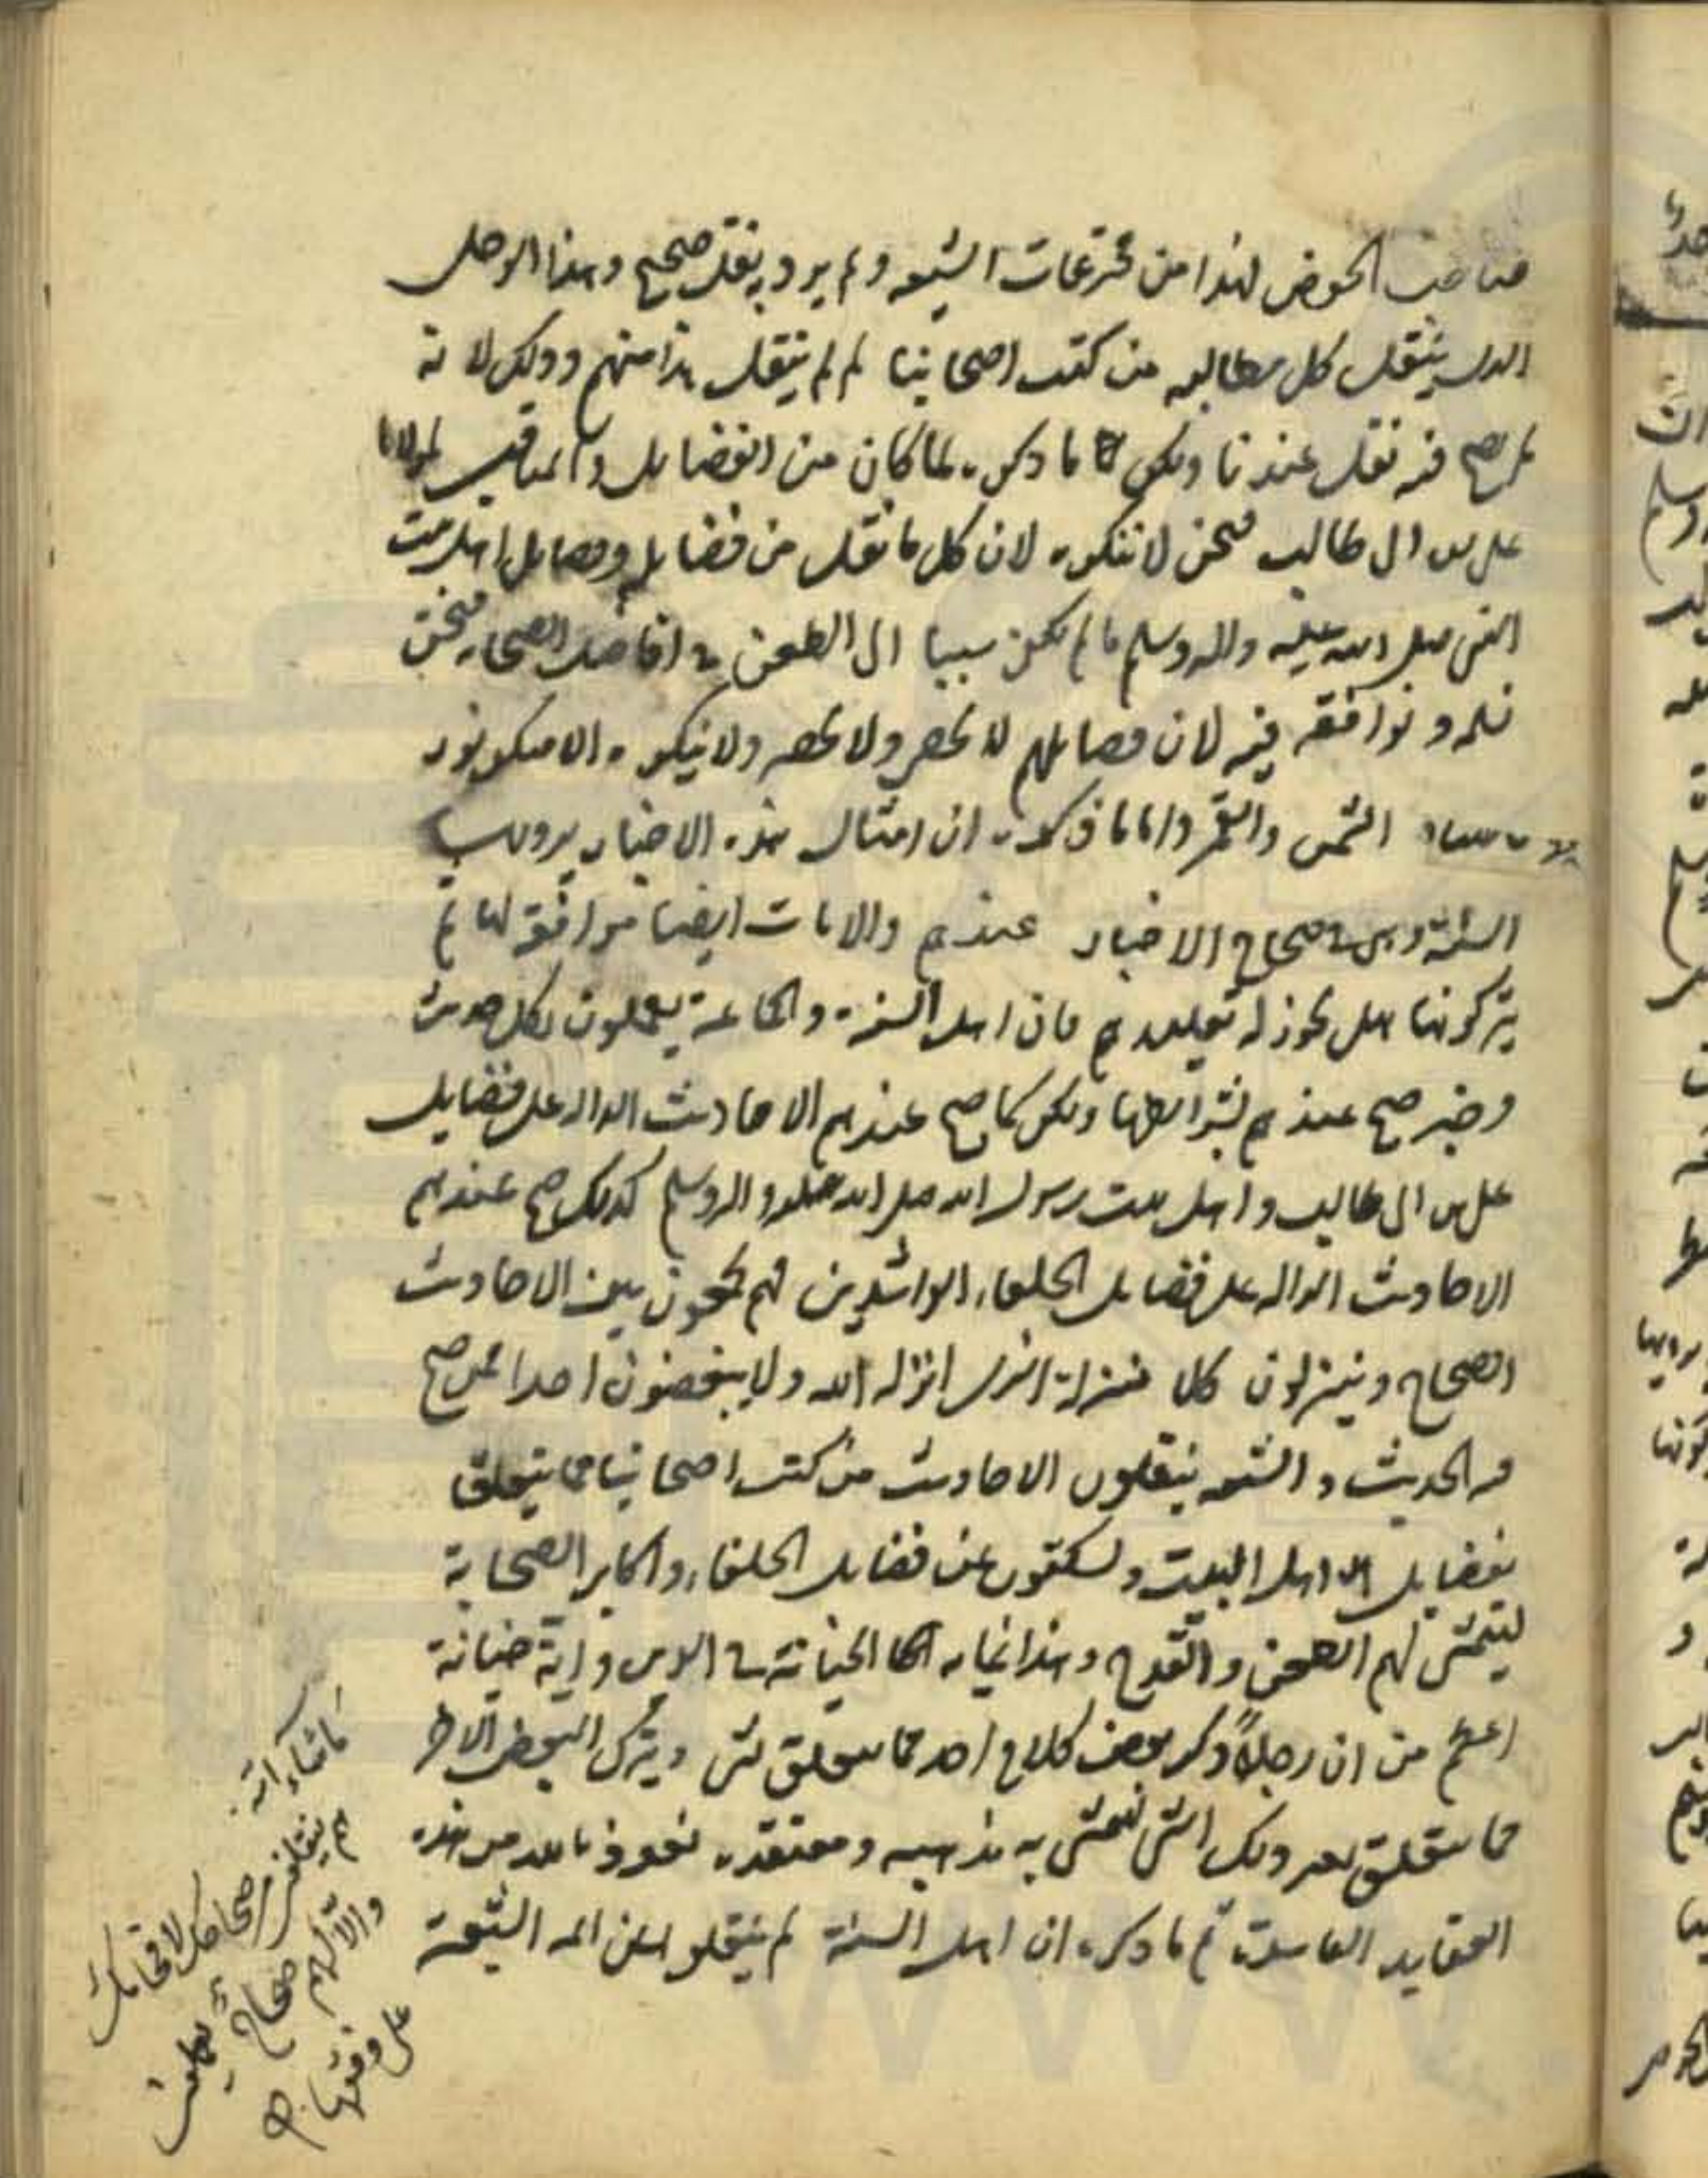 صاحب الحوض فهذا من مخترعات الشيعه ولم يرد به نقل صحيح وهذا الرجل
الذي ينقل كل مطالبه من كتب اصحابنا لم لم ينقل هذا منهم وذلك لانه
لم يصح فيه نقل عندنا ولكن ما ذكره لما كان من الفضايل والمناقب لمولانا
علي بن ابي طالب فنحن لا ننكره لان كل ما نقل من فضايله وفضايل اهل بيت
النبي صلى الله عليه واله وسلم ما لم يكن سببا الى الطعن في افاضل الصحابه فنحن
نسلمه ونوافقه فيه لان فضايلهم لا تحصر ولا تحصى ولا ينكره الا منكر نور
الشمس والقمر واما ما ذكره ان امثال هذه الاخبار يرويها
السنة وهي في صحاح الاخبار عندهم والايات ايضا موافقة لها ثم
يتركونها هل يجوز له تقليدهم فان اهل السنة والجماعة يعملون بكل حديث
وخبر صح عندهم بشرايطها ولكن كما صح عندهم الاحاديث الداله على فضايل
علي بن ابي طالب واهل بيت رسول الله صلى الله عليه واله وسلم كذلك صح عندهم
الاحاديث الداله على فضايل الخلفاء الراشدين فهم يجمعون بين الاحاديث
الصحاح وينزلون كلا منزلة الذي انزله الله ولا ينغصون احدا ممن صح
فيه الحديث والشيعه ينقلون الاحاديث من كتب اصحابنا مما يتعلق
بفضايل اهل البيت ويسكتون عن فضايل الخلفاء واكابر الصحابة
ليتمشى لهم الطعن والقدح وهذا غايه الخيانة في الدين واية خيانة
اعظم من ان رجلا ذكر بعض كلام احد مما يتعلق بشي ويترك البعض الاخر
مما يتعلق بعين ذلك الشي ليتمشى به مذهبه ومعتقده نعوذ بالله من هذه
العقايد الفاسدة ثم ما ذكره ان اهل السنة لم ينقلوا عن ائمة الشيعة
ما شاء الله
والا لهم صحاح
على وفقها